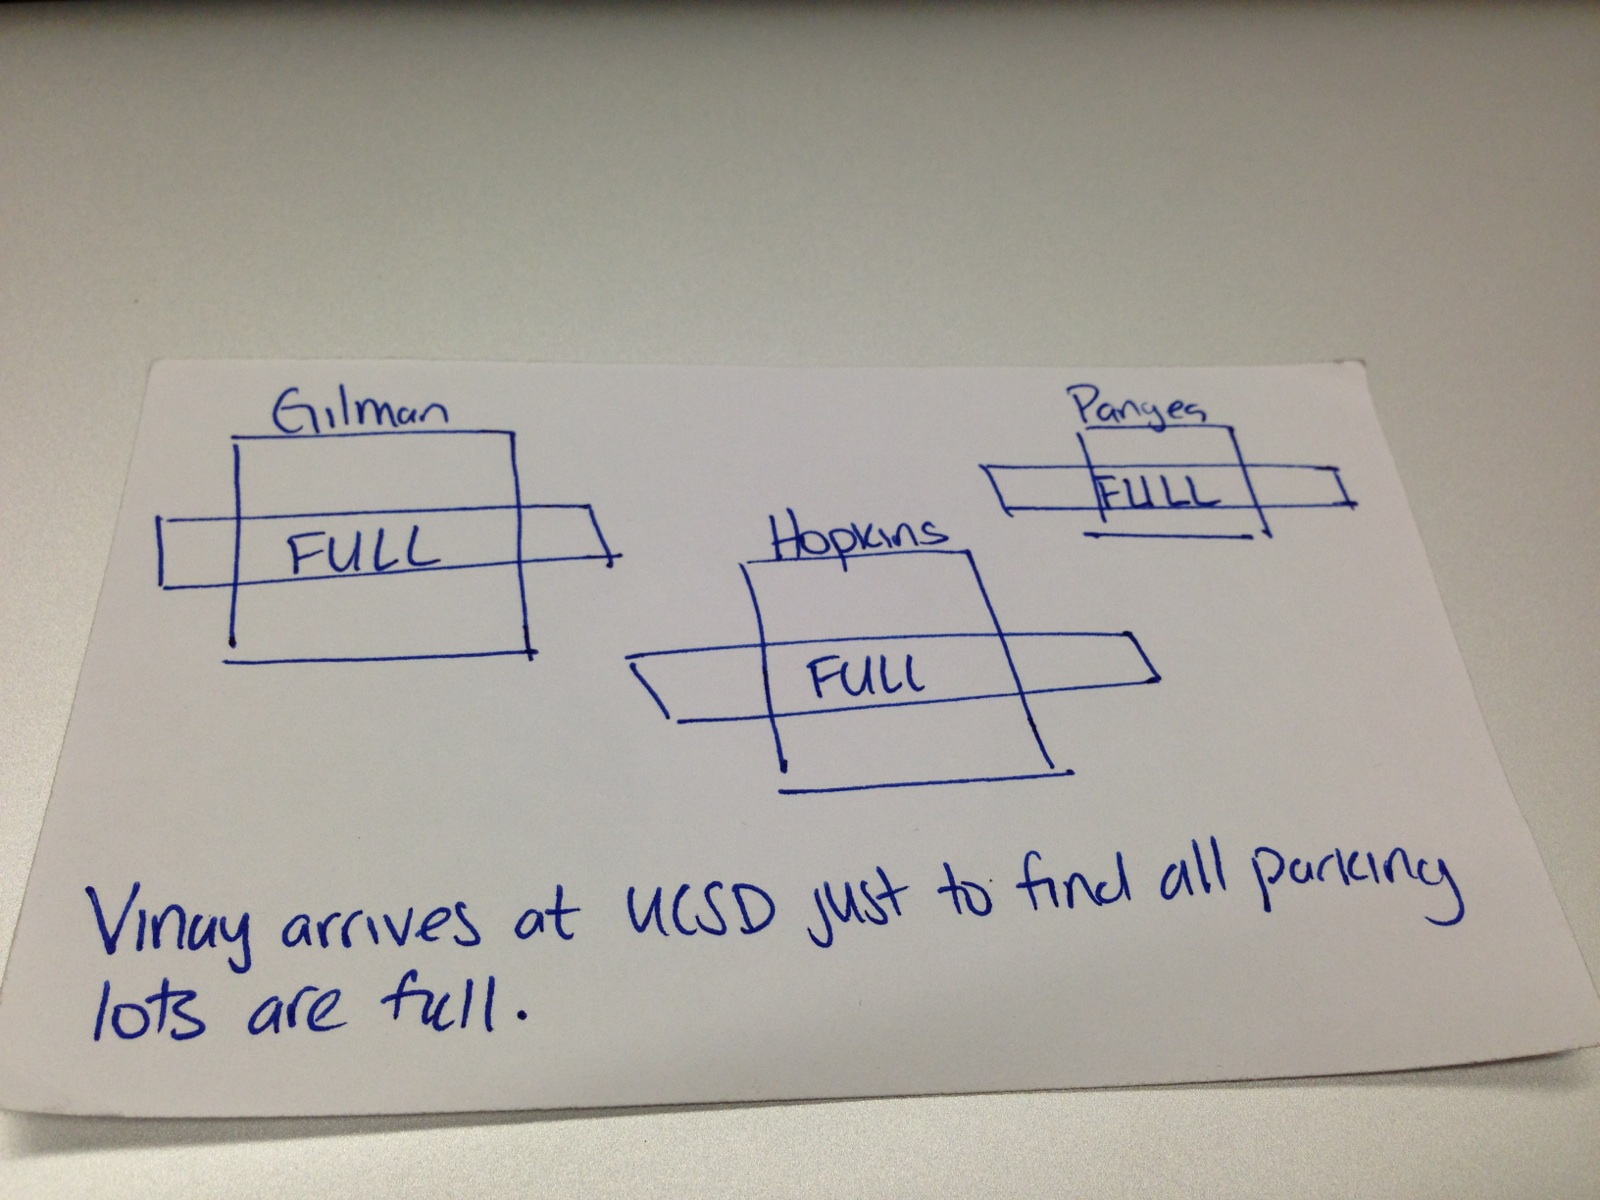 Gilman
FULL
Hopkins
FULL
Pangea
FULL
Vinay arrives at UCSD just to find all parking
lots are full.